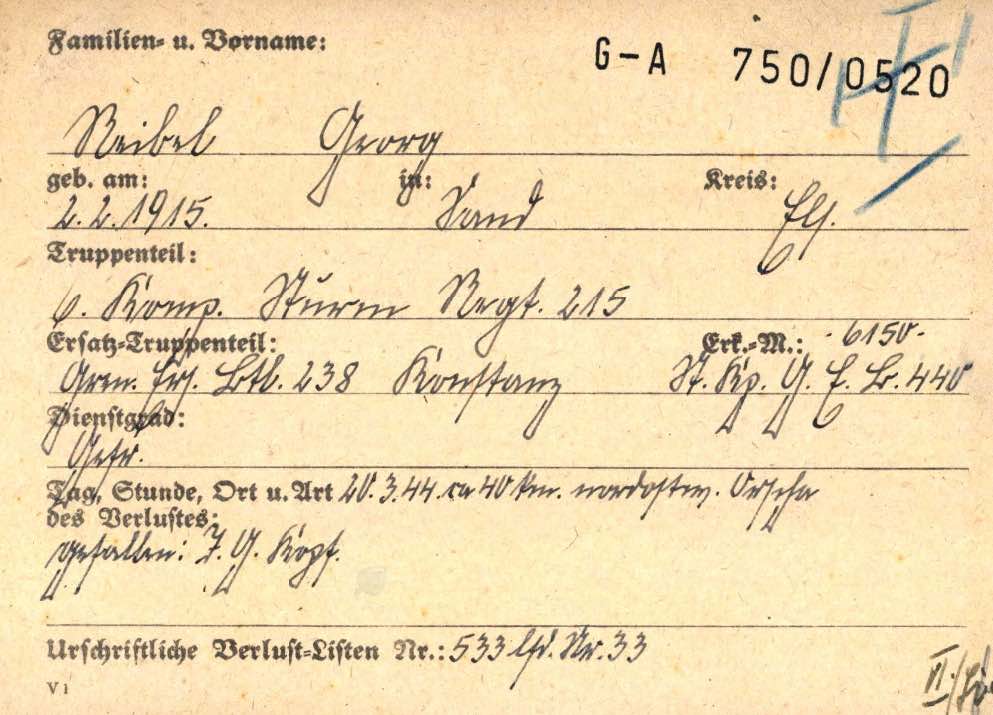 Familien- u. Vorname:
G-A 750/0520
Reibel Georg
geb. am: in: Kreis:
2.2.1915. Sand Els.
Truppenteil:
6. Komp. Sturm Regt. 215
Ersatz-Truppenteil: Erk.-M.: -6150-
Gren. Ers. Btl. 238 Konstanz St. Kp. G. E. B. 440
Dienstgrad:
Gefr.
Tag, Stunde, Ort u. Art 20.3.44. ca 40 km. nordostw. Orscha
des Verlustes:
gefallen: I. G. Kopf.
Urschriftliche Verlust-Listen Nr.: 533 lfd. Nr. 33
V 1
VI/